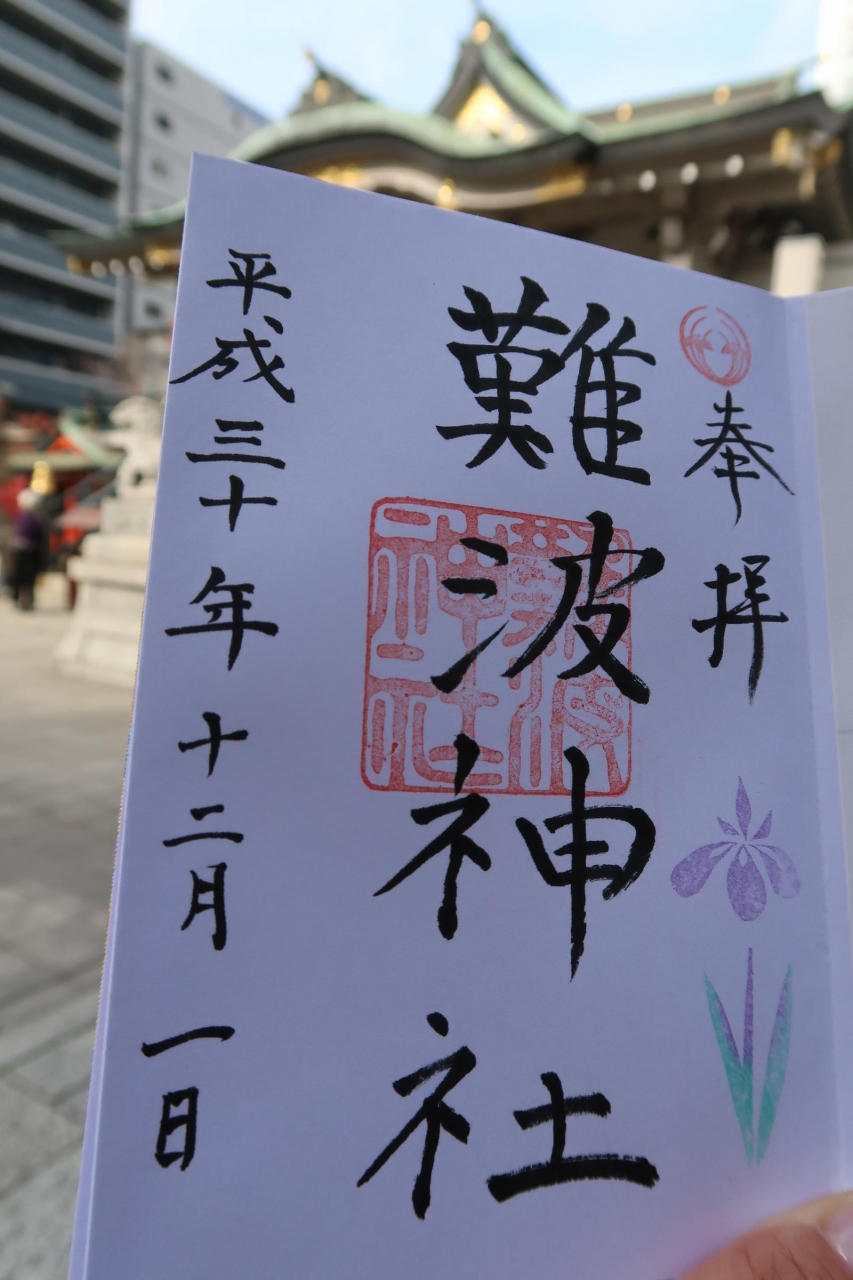 奉拝
難波神社
難波神社
平成三十年十二月一日